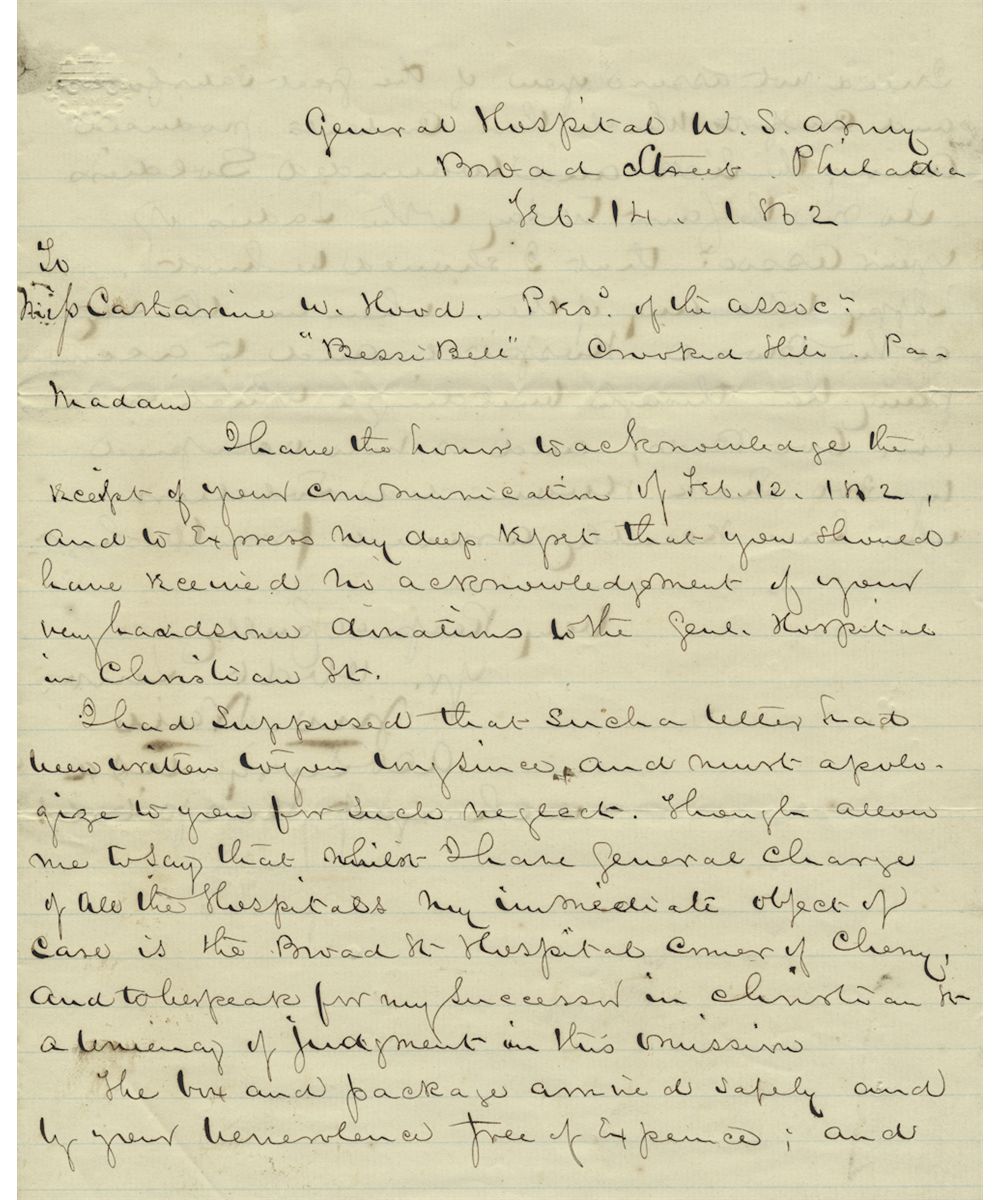 General Hospital U. S. Army
Broad Street. Philada
Feb. 14. 1862
To
Miss Catharine W. Hood. Pres.t of the assoc.n
"Bessie Bell" Crooked Hill. Pa.
Madam
I have the honor to acknowledge the
receipt of your communication of Feb. 12. 1862,
and to Express my deep regret that you should
have received no acknowledgement of your
very handsome donations to the Genl. Hospital
in Christian St.
I had Supposed that Such a letter had
been written to you long Since, and must apolo-
gize to you for Such neglect. Though allow
me to Say that whilst I have General Charge
of all the Hospitals my immediate object of
Care is the Broad St Hospital Corner of Cherry,
And to bespeak for my Successor in Christian St
a leniency of judgment in this omission
The box and package arrived Safely and
by your benevolence Free of Expence; and